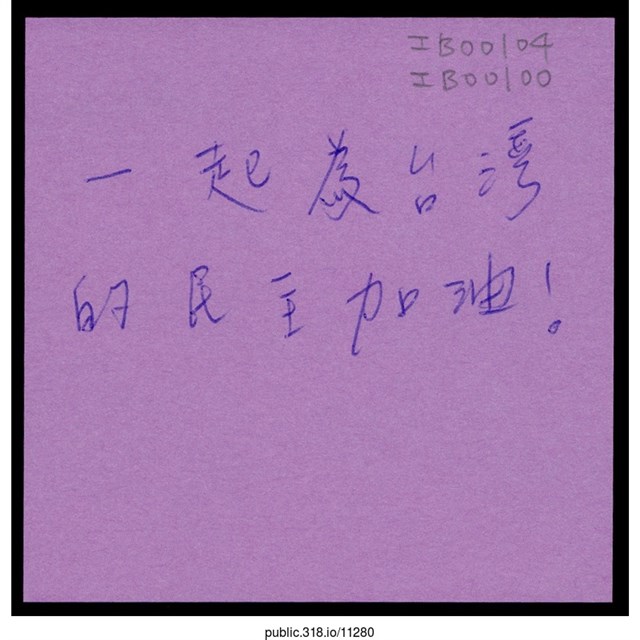 IB00104
IB00100
一起為台灣
的民主加油!
public.318.io/11280